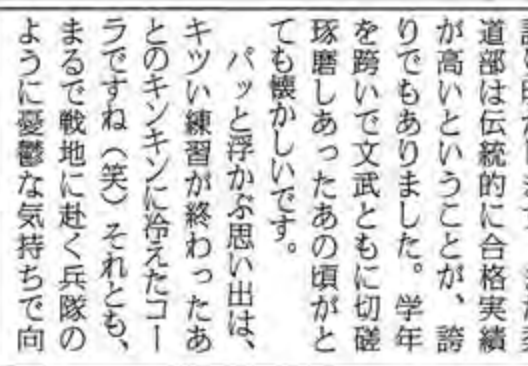 道部は伝統的に合格実績
が高いということが、誇
りでもありました。学年
を跨いで文武ともに切磋
琢磨しあったあの頃がと
ても懐かしいです。
パッと浮かぶ思い出は、
キツい練習が終わったあ
とのキンキンに冷えたコー
ラですね（笑）それとも、
まるで戦地に赴く兵隊の
ように憂鬱な気持ちで向